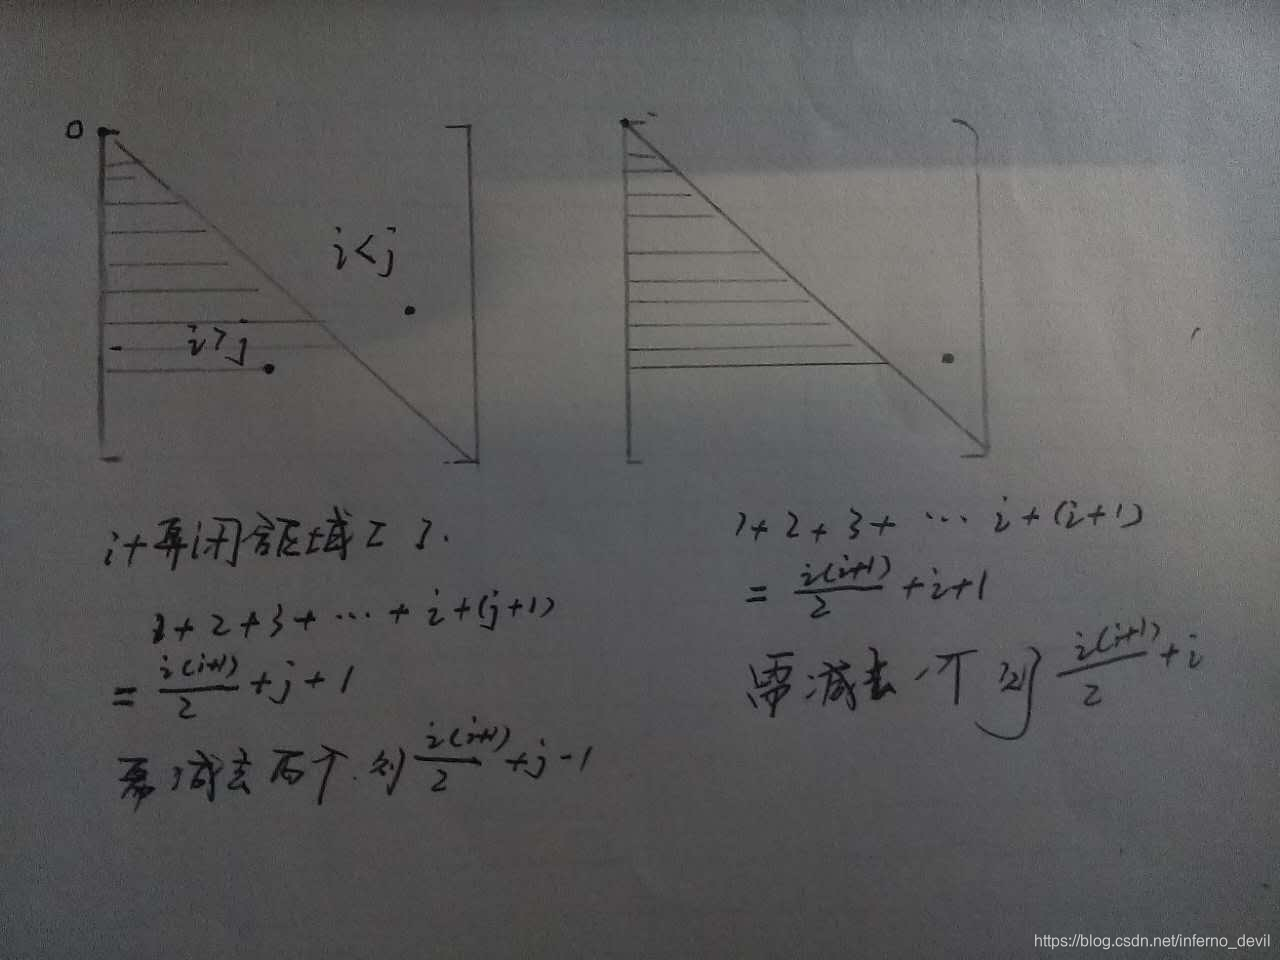 0
i<j
i>j
计算闭区域[ ].
1+2+3+…+i+(j+1)
= i(i+1)/2 +j+1
需减去两个 则 i(i+1)/2 +j-1
1+2+3+…i+(i+1)
= i(i+1)/2 +i+1
需减去一个 则 i(i+1)/2 +i
https://blog.csdn.net/inferno_devil